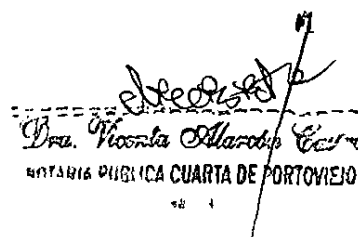 Dra. Vicenta Alarcón
NOTARIA PUBLICA CUARTA DE PORTOVIEJO